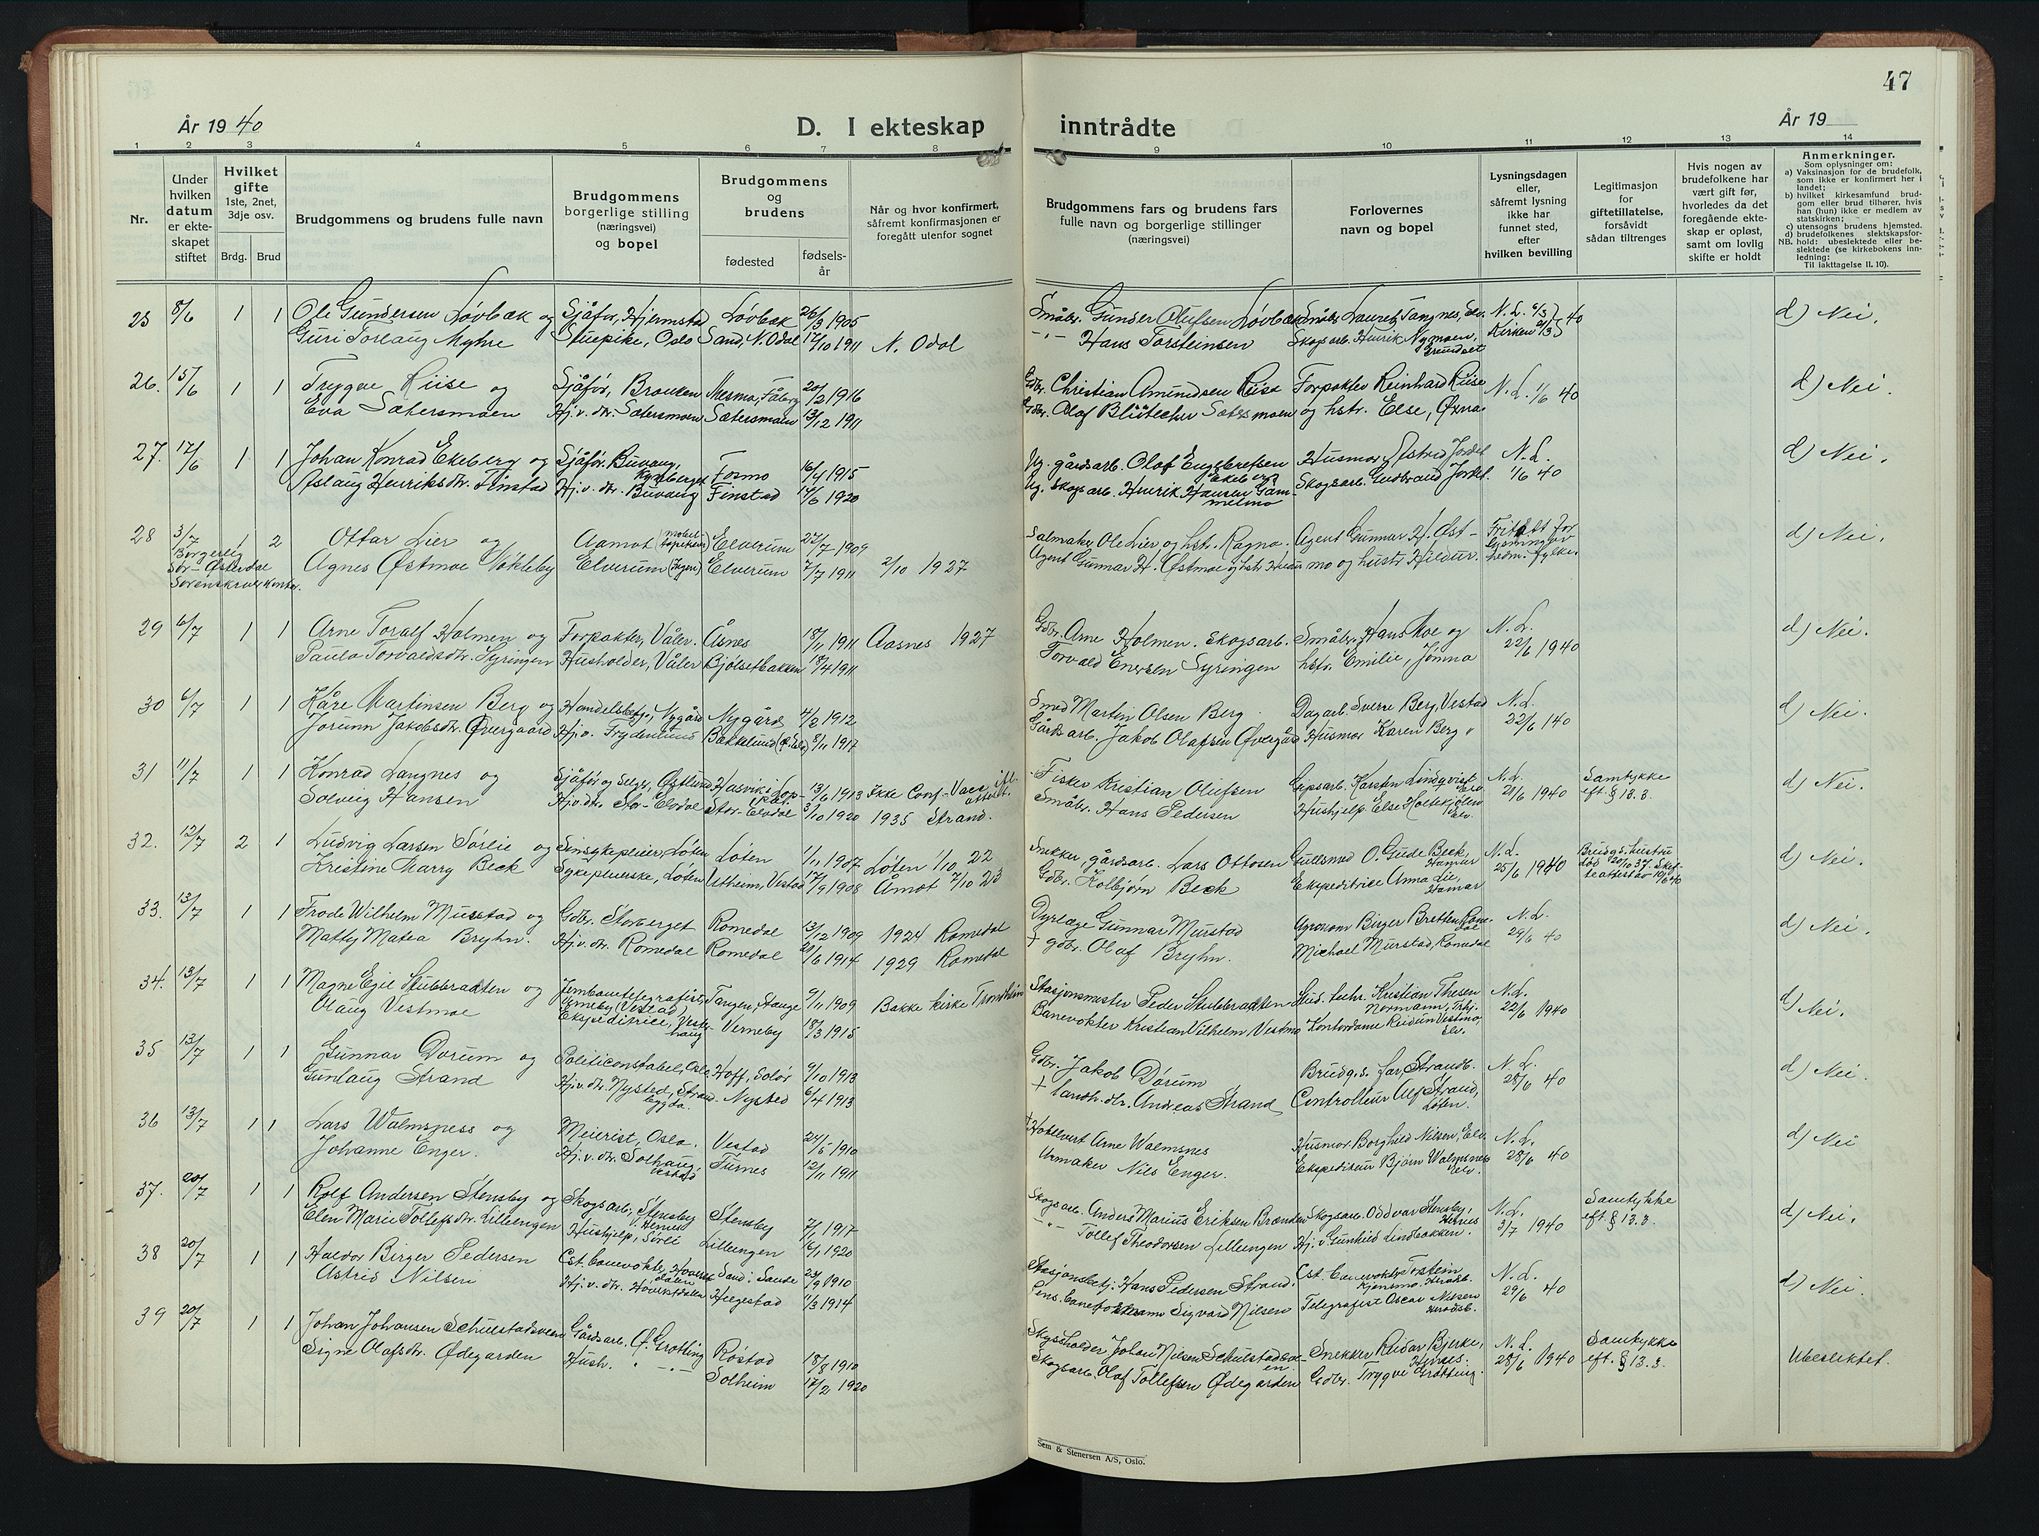 47
År 1940
D. I ekteskap inntrådte
År 19
1 2 3 4 5 6 7 8 9 10 11 12 13 14
Nr.
Under
hvilken
datum
er ekte-
skapet
stiftet
Hvilket
gifte
1ste, 2net,
3dje osv.
Brdg. Brud
Brudgommens og brudens fulle navn
Brudgommens
borgerlige stilling
(næringsvei)
og bopel
Brudgommens
og
brudens
fødested
fødsels-
år
Når og hvor konfirmert,
såfremt konfirmasjonen er
foregått utenfor sognet
Brudgommens fars og brudens fars
fulle navn og borgerlige stillinger
(næringsvei)
Forlovernes
navn og bopel
Lysningsdagen
eller,
såfremt lysning
ikke har
funnet sted,
efter
hvilken bevilling
Legitimasjon
for
giftetillatelse,
forsåvidt
sådan tiltrenges
Hvis nogen av
brudefolkene har
vært gift før,
hvorledes da det
foregående ekte-
skap er opløst,
samt om lovlig
skifte er holdt
Anmerkninger.
Som oplysninger om:
a) Vaksinasjon for de brudefolk,
som ikke er konfirmert her i
landet;
b) hvilket kirkesamfund brud-
gom eller brud tilhører, hvis
han (hun) ikke er medlem av
statskirken;
c) utensogns brudens hjemsted.
d) brudefolkenes slektskapsfor-
NB. hold: ubeslektede eller be-
slektede (se kirkebokens inn-
ledning:
Til iakttagelse II. 10).
25 8/6 1 1 Ole Gundersen Løvbæk og Sjåfør, Hjermstad Løvbæk 26/3 1905 Småbr. Gunder Olufsen Løvbæk Småbr. Lauretz Tangnes, N. L. 40 d) Nei.
Guri Torlaug Myhre Stuepike, Oslo Sand, N. Odal 17/10 1911 N. Odal -"- Hans Torsteinsen Skogsarb. Henrik Nymoen, Grundset Kirken
26. 15/6 1 1 Trygve Riise og Sjåfør, Braneen Mesna, Fåberg 20/2 1916 Gdbr. Christian Amundsen Riise Forpakter Reinhard Riise N. L. 1/6 40 d) Nei.
Eva Sætersmoen Hj. v. dtr. Sætersmoen Sætersmoen 13/12 1911 Gdbr. Olaf Blütecher Sætersmoen og hstr. Else, Øxna
27. 17/6 1 1 Johan Konrad Ekeberg og Sjåfør, Buvang, Fosmo 16/4 1915 Ug. gårdsarb. Olaf Engebretsen Ekeberg Husmor Astrid Jordet N. L. d) Nei.
Aslaug Henriksdtr. Finstad Hj. v. dtr. Buvang Finstad 1920 Ug. skogsarb. Henrik Hansen Gammelmo Skogsarb. Gudbrand Jordet 1/6 40
28 3/7 1 2 Ottar Lier og Aamot Elverum 27/7 1909 Salmaker Ole Lier og hst. Ragna. Agent Gunnar H. Øst- Fritatt for d) Nei.
Borgerlig Agnes Østmoe Nökleby Elverum Elverum 7/7 1911 2/10 1927 Agent Gunnar H. Østmoe og hstr. moe og hustr. Hildur. lysning av
Sør-Østerdal
Sorenskriverkontor.
29 6/7 1 1 Arne Toralf Holmen og Forpakter, Våler. Åsnes 18/11 1911 Aasnes 1927 Gdbr. Arne Holmen. Skogsarb. Småbr. Hans Moe og N. L. d) Nei.
Paula Torvaldsdtr. Syringen Husholder, Våler Bjölsetbakken 1911 Torvald Enersen Syringen hstr. Emilie, Jömna 22/6 1940
30 6/7 1 1 Kåre Martinsen Berg og Handelsbetj., Nygård Nygård 4/2 1912 Smed Martin Olsen Berg Dagarb. Sverre Berg, Vestad N. L. d) Nei.
Jorunn Jakobsdtr. Øvergaard Hj. v. Frydenlund Bakkelund 8/11 1917 Gårdsarb. Jakob Olafsen Øvergård Husmor Karen Berg 22/6 40
31 11/7 1 1 Konrad Langnes og Sjåfør og selger, Østlund Hasvik i Loppa 13/6 1913 Ikke Conf. Fisker Kristian Olufsen Gipsarb. Karsten Lindqvist N. L. Samtykke d) Nei.
Solveig Hansen Hj. v. dtr. Stor-Elvdal Stor-Elvdal 3/10 1920 1935 Strand. Småbr. Hans Pedersen Hushjelp Else Holtekjölen Elv. 21/6 1940 eft. § 13. 3.
32. 12/7 2 1 Ludvig Larsen Sørlie og Sinsykepleier, Løten Løten 1/11 1907 Løten 1/10 22 Snekker, gårdsarb. Lars Ottosen Gullsmed O. Gude Beck, Hamar N. L. Brudg.s hustru d) Nei.
Kristine Marry Beck Sykepleierske, Løten Utheim, Vestad 17/9 1908 Åmot 7/10 23 Gdbr. Kolbjörn Beck Ekspeditrice Anna Lie, Hamar 25/6 1940 död 20/10 37. Skifteattest av 10/6 40
33. 13/7 1 1 Frode Wilhelm Mustad og Gdbr. Storberget Romedal 13/12 1909 1924 Romedal Dyrlæge Gunnar Mustad Agronom Birger Bretten, Romedal N. L. d) Nei.
Matty Matea Bryhn. Hj. v. dtr. Romedal Romedal 1914 1929 Romedal + gdbr. Olaf Bryhn. Michael Mustad, Romedal 29/6 40
34. 13/7 1 1 Magne Egil Stubbrækten og Jernbanetelegrafist, Verneby, Vestad, Tangen, Stange 9/11 1909 Bakke kirke Trondheim Stasjonsmester Peder Stubbrækten Stud. techn. Kristian Thesen Normann, N. L. d) Nei.
Olaug Vestmoe Ekspeditrice, Vesthaug Verneby 18/3 1915 Banevokter Kristian Vilhelm Vestmo Kontordame Reidun Vestmo, Elv. 22/6 1940
35 13/7 1 1 Gunnar Dørum og Politiconstabel, Oslo Hoff, Solør 9/10 1913 Gdbr. Jakob Dørum Brudg.s far, Strandb. N. L. d) Nei.
Gunlaug Strand Hj. v. dtr. Nysted, Strandbygda. Nysted 6/4 1913 + landh.dlr. Andreas Strand Controlleur Alf Strand, Løten. 28/6 40
36 13/7 1 1 Lars Walmsness og Meierist, Oslo. Vestad 24/5 1910 + Hotelvert Arne Walmsnes Husmor Borghild Nilsen, Elv. N. L. d) Nei
Johanne Enger. Hj. v. dtr. Solhaug, Vestad Furnes 12/11 1911 Urmaker Nils Enger. Ekspeditur Björn Walmsnes Elv. 28/6 40
37. 20/7 1 1 Rolf Andersen Stensby og Skogsarb., Stensby v. Hernes Stensby 7/1 1917 Skogsarb. Anders Marius Eriksen Brænden Skogsarb. Oddvar Stensby, Hernes N. L. Samtykke d) Nei.
Elen Marie Tollefsdtr. Lilleengen Hushjelp, Sörli Lilleengen 16/1 1920 -"- Tollef Theodorsen Lilleengen Hj. v. Gunhild Lindbakken. 3/7 1940 eft. § 13. 3.
38 20/7 1 1 Haldor Birger Pedersen Est. banevokter, Hoversetdalen Sand i Sande 23/9 1910 Stasjonsbetj. Hans Pedersen Strand. Est. banevokter Torstein Kjensmo, N. L. d) Nei.
Astrid Nilsen Hj. v. dtr. Hoversetdalen Helgestad 11/3 1914 Pens. banevokter Sigvard Nilsen Telegrafist Oscar Nilsen 29/6 40
39 20/7 1 1 Johan Johansen Schulstadsveen Gårdsarb. Ø. Grötting Röstad 18/8 1910 Skysholder Johan Nilsen Schulstadsveen Snekker Reidar Bjerke, Hernes. N. L. Samtykke Ubeslektet.
Signe Olafsdtr. Ødegarden Hush. " -"- Solheim 17/2 1920 Skogsarb. Olaf Tollefsen Ødegarden Gdbr. Trygve Grötting. 28/6 1940 eft. § 13. 3.
Sem & Stenersen A/S, Oslo.